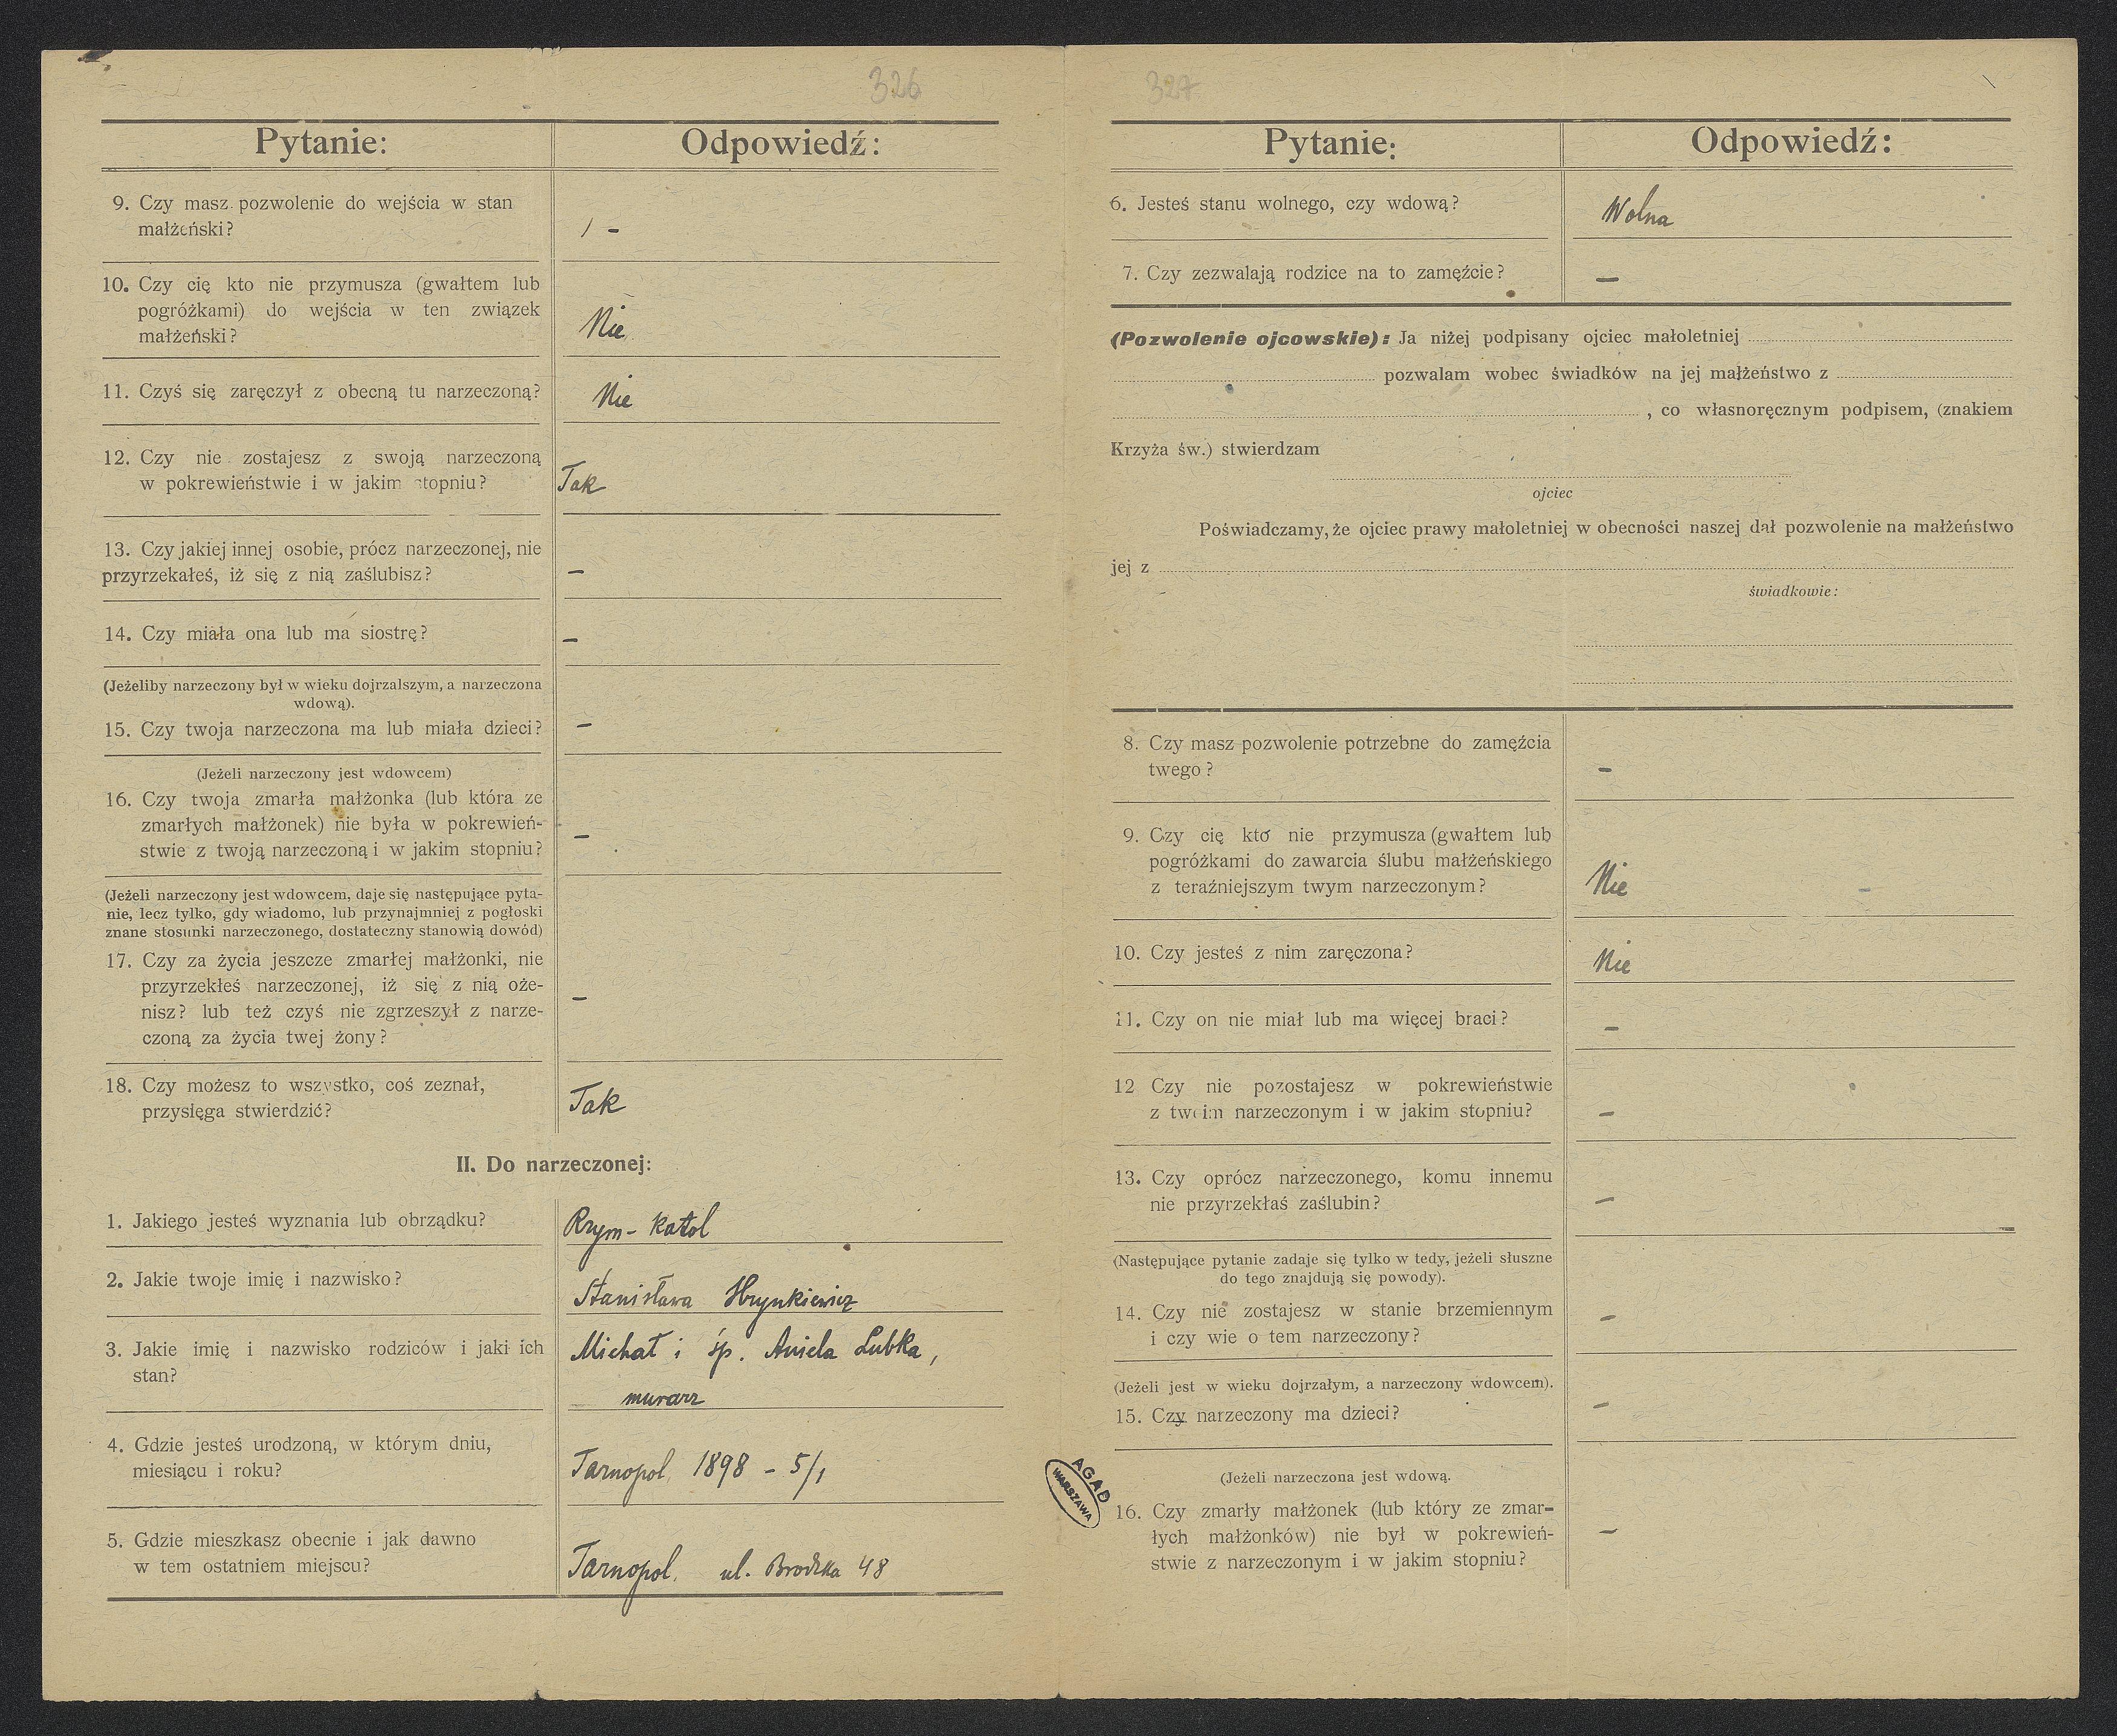 326
Pytanie:
Odpowiedź:
9. Czy masz pozwolenie do wejścia w stan
małżeński?
/ –
10. Czy cię kto nie przymusza (gwałtem lub
pogróżkami) do wejścia w ten związek
małżeński?
Nie
11. Czyś się zaręczył z obecną tu narzeczoną?
Nie
12. Czy nie zostajesz z swoją narzeczoną
w pokrewieństwie i w jakim stopniu?
Tak
13. Czy jakiej innej osobie, prócz narzeczonej, nie
przyrzekałeś, iż się z nią zaślubisz?
–
14. Czy miała ona lub ma siostrę?
–
(Jeżeliby narzeczony był w wieku dojrzalszym, a narzeczona
wdową).
15. Czy twoja narzeczona ma lub miała dzieci?
–
(Jeżeli narzeczony jest wdowcem)
16. Czy twoja zmarła małżonka (lub która ze
zmarłych małżonek) nie była w pokrewień-
stwie z twoją narzeczoną i w jakim stopniu?
–
(Jeżeli narzeczony jest wdowcem, daje się następujące pyta-
nie, lecz tylko, gdy wiadomo, lub przynajmniej z pogłoski
znane stosunki narzeczonego, dostateczny stanowią dowód)
17. Czy za życia jeszcze zmarłej małżonki, nie
przyrzekłeś narzeczonej, iż się z nią oże-
nisz? lub też czyś nie zgrzeszył z narze-
czoną za życia twej żony?
–
18. Czy możesz to wszystko, coś zeznał,
przysięga stwierdzić?
Tak
II. Do narzeczonej:
1. Jakiego jesteś wyznania lub obrządku?
Rzym- katol
2. Jakie twoje imię i nazwisko?
Stanisława Hrynkiewicz
3. Jakie imię i nazwisko rodziców i jaki ich
stan?
Michał i śp. Aniela Lubka,
murarz
4. Gdzie jesteś urodzoną, w którym dniu,
miesiącu i roku?
Tarnopol, 1898 – 5/1
5. Gdzie mieszkasz obecnie i jak dawno
w tem ostatniem miejscu?
Tarnopol. ul. Brodzka 48
327
Pytanie:
Odpowiedź:
6. Jesteś stanu wolnego, czy wdową?
Wolna
7. Czy zezwalają rodzice na to zamęźcie?
–
(Pozwolenie ojcowskie): Ja niżej podpisany ojciec małoletniej
pozwalam wobec świadków na jej małżeństwo z
, co własnoręcznym podpisem, (znakiem
Krzyża św.) stwierdzam
ojciec
Poświadczamy, że ojciec prawy małoletniej w obecności naszej dał pozwolenie na małżeństwo
jej z
świadkowie:
8. Czy masz pozwolenie potrzebne do zamęźcia
twego?
–
9. Czy cię kto nie przymusza (gwałtem lub
pogróżkami do zawarcia ślubu małżeńskiego
z teraźniejszym twym narzeczonym?
Nie
10. Czy jesteś z nim zaręczona?
Nie
11. Czy on nie miał lub ma więcej braci?
–
12 Czy nie pozostajesz w pokrewieństwie
z twoim narzeczonym i w jakim stopniu?
–
13. Czy oprócz narzeczonego, komu innemu
nie przyrzekłaś zaślubin?
–
(Następujące pytanie zadaje się tylko w tedy, jeżeli słuszne
do tego znajdują się powody).
14. Czy nie zostajesz w stanie brzemiennym
i czy wie o tem narzeczony?
–
(Jeżeli jest w wieku dojrzałym, a narzeczony wdowcem).
15. Czy narzeczony ma dzieci?
–
AGAD
WARSZAWA
(Jeżeli narzeczona jest wdową.
16. Czy zmarły małżonek (lub który ze zmar-
łych małżonków) nie był w pokrewień-
stwie z narzeczonym i w jakim stopniu?
–